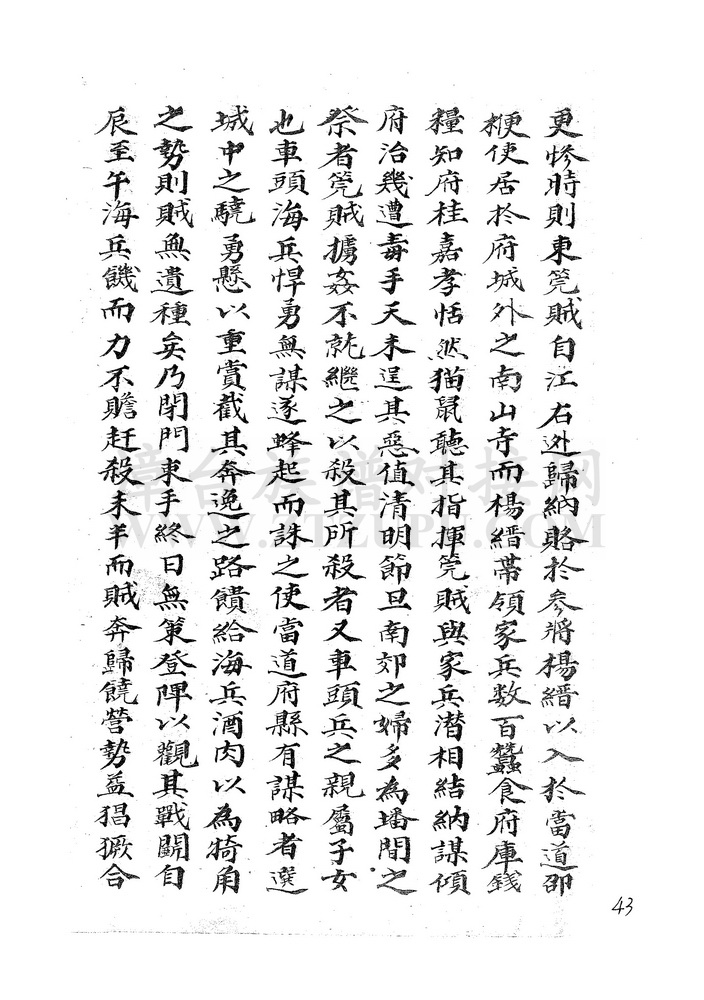 更慘時則東筦賊自江右迯歸納賂於参將楊縉以入於當道邵
梗使居於府城外之南山寺而楊縉蒂領家兵数百蠶食府庫錢
糧知府桂嘉孝恬然猫鼠聽其指揮筦賊與家兵潜相結納謀傾
府治幾遭毒手天未逞其惡值清明節旦南郊之婦多為墦間之
祭者筦賊擄姦不就繼之以殺其所殺者又車頭兵之親屬子女
也車頭海兵悍勇無謀遂蜂起而誅之使當道府縣有謀略者選
城中之驍勇懸以重賞截其奔逸之路饋給海兵酒肉以為犄角
之勢則賊無遺種矣乃閉門束手終日無策登陴以觀其戰鬪自
辰至午海兵饑而力不贍赶殺未半而賊奔歸饒營勢益猖獗合
43
漳台族谱对接网
WWW.ZTZUPU.COM